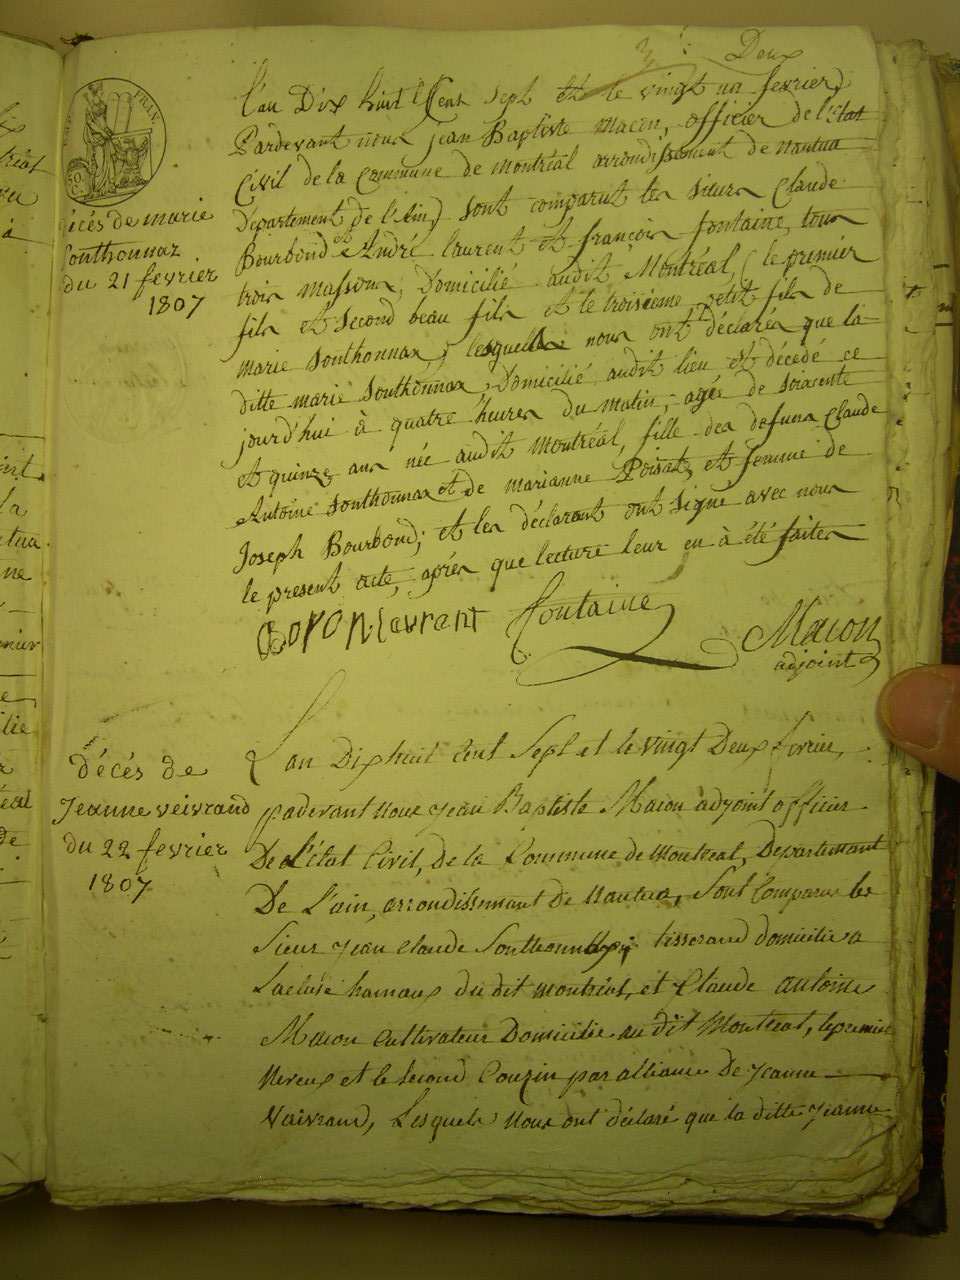 Deux
L'an Dix huit Cent Sept et le vingt un fevrier
Pardevant nous jean Baptiste Macon, officier de l'Etat
Civil de la Commune de Montréal arrondissement de Nantua
Departement de l'Ain) sont comparut les sieurs Claude
Bourbond et André laurent et françois fontaine, tous
trois massons, Domicilié audit Montréal, (le premier
fils et Second beau fils et le troisieme petit fils de
marie Sonthonnax, lesquells nous ont déclarés que la
ditte marie Sonthonnax, Domicilié audit lieu est décedé ce
jourd'hui à quatre heures du matin, agée de soixante
et quinze ans née audit Montréal, fille des defuns Claude
Antoine Sonthonnax et de marianne Poisat, et femme de
Joseph Bourbond; et les déclarant ont signé avec nous
le present acte, aprés que lecture leur en à été faites
décés de marie
Sonthonnax
du 21 fevrier
1807
Laurant Fontaine Macon
adjoint
décés de
Jeanne veivrand
du 22 fevrier
1807
L'an Dix huit Cent Sept et le vingt Deux fevrier,
padevant nous jean Baptiste Macon adjoint officier
De L'état Civil, de la Commune de Montreal, Departement
De L'ain, arrondissement De Nantua, Sont Comparus les
Sieur jean Claude Sonthonnax, tisserand domicilié a
Lacluse hamaux du dit montréal, et Claude antoine
Macon Cultivateur Domicilié au dit Montreal, le premier
Neveux et le Second Couzin par alliance De jeanne
Vaivrand, Lesquels nous ont déclaré que la ditte jeanne